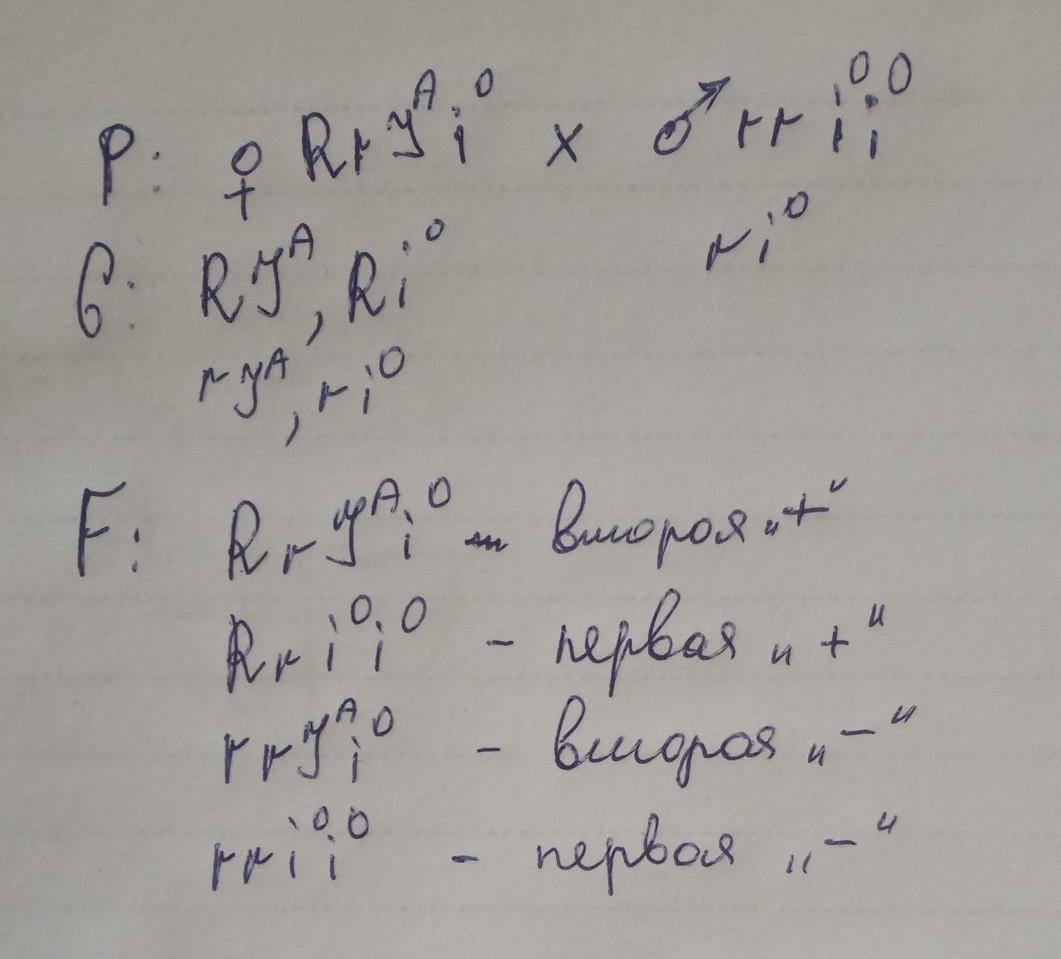 P: ♀ RrJᴬi⁰ x ♂ rr i⁰i⁰
G: RJᴬ, Ri⁰ ri⁰
rJᴬ, ri⁰
F: RrJᴬi⁰ - вторая „+"
Rri⁰i⁰ - первая „+"
rrJᴬi⁰ - вторая „-"
rri⁰i⁰ - первая „-"